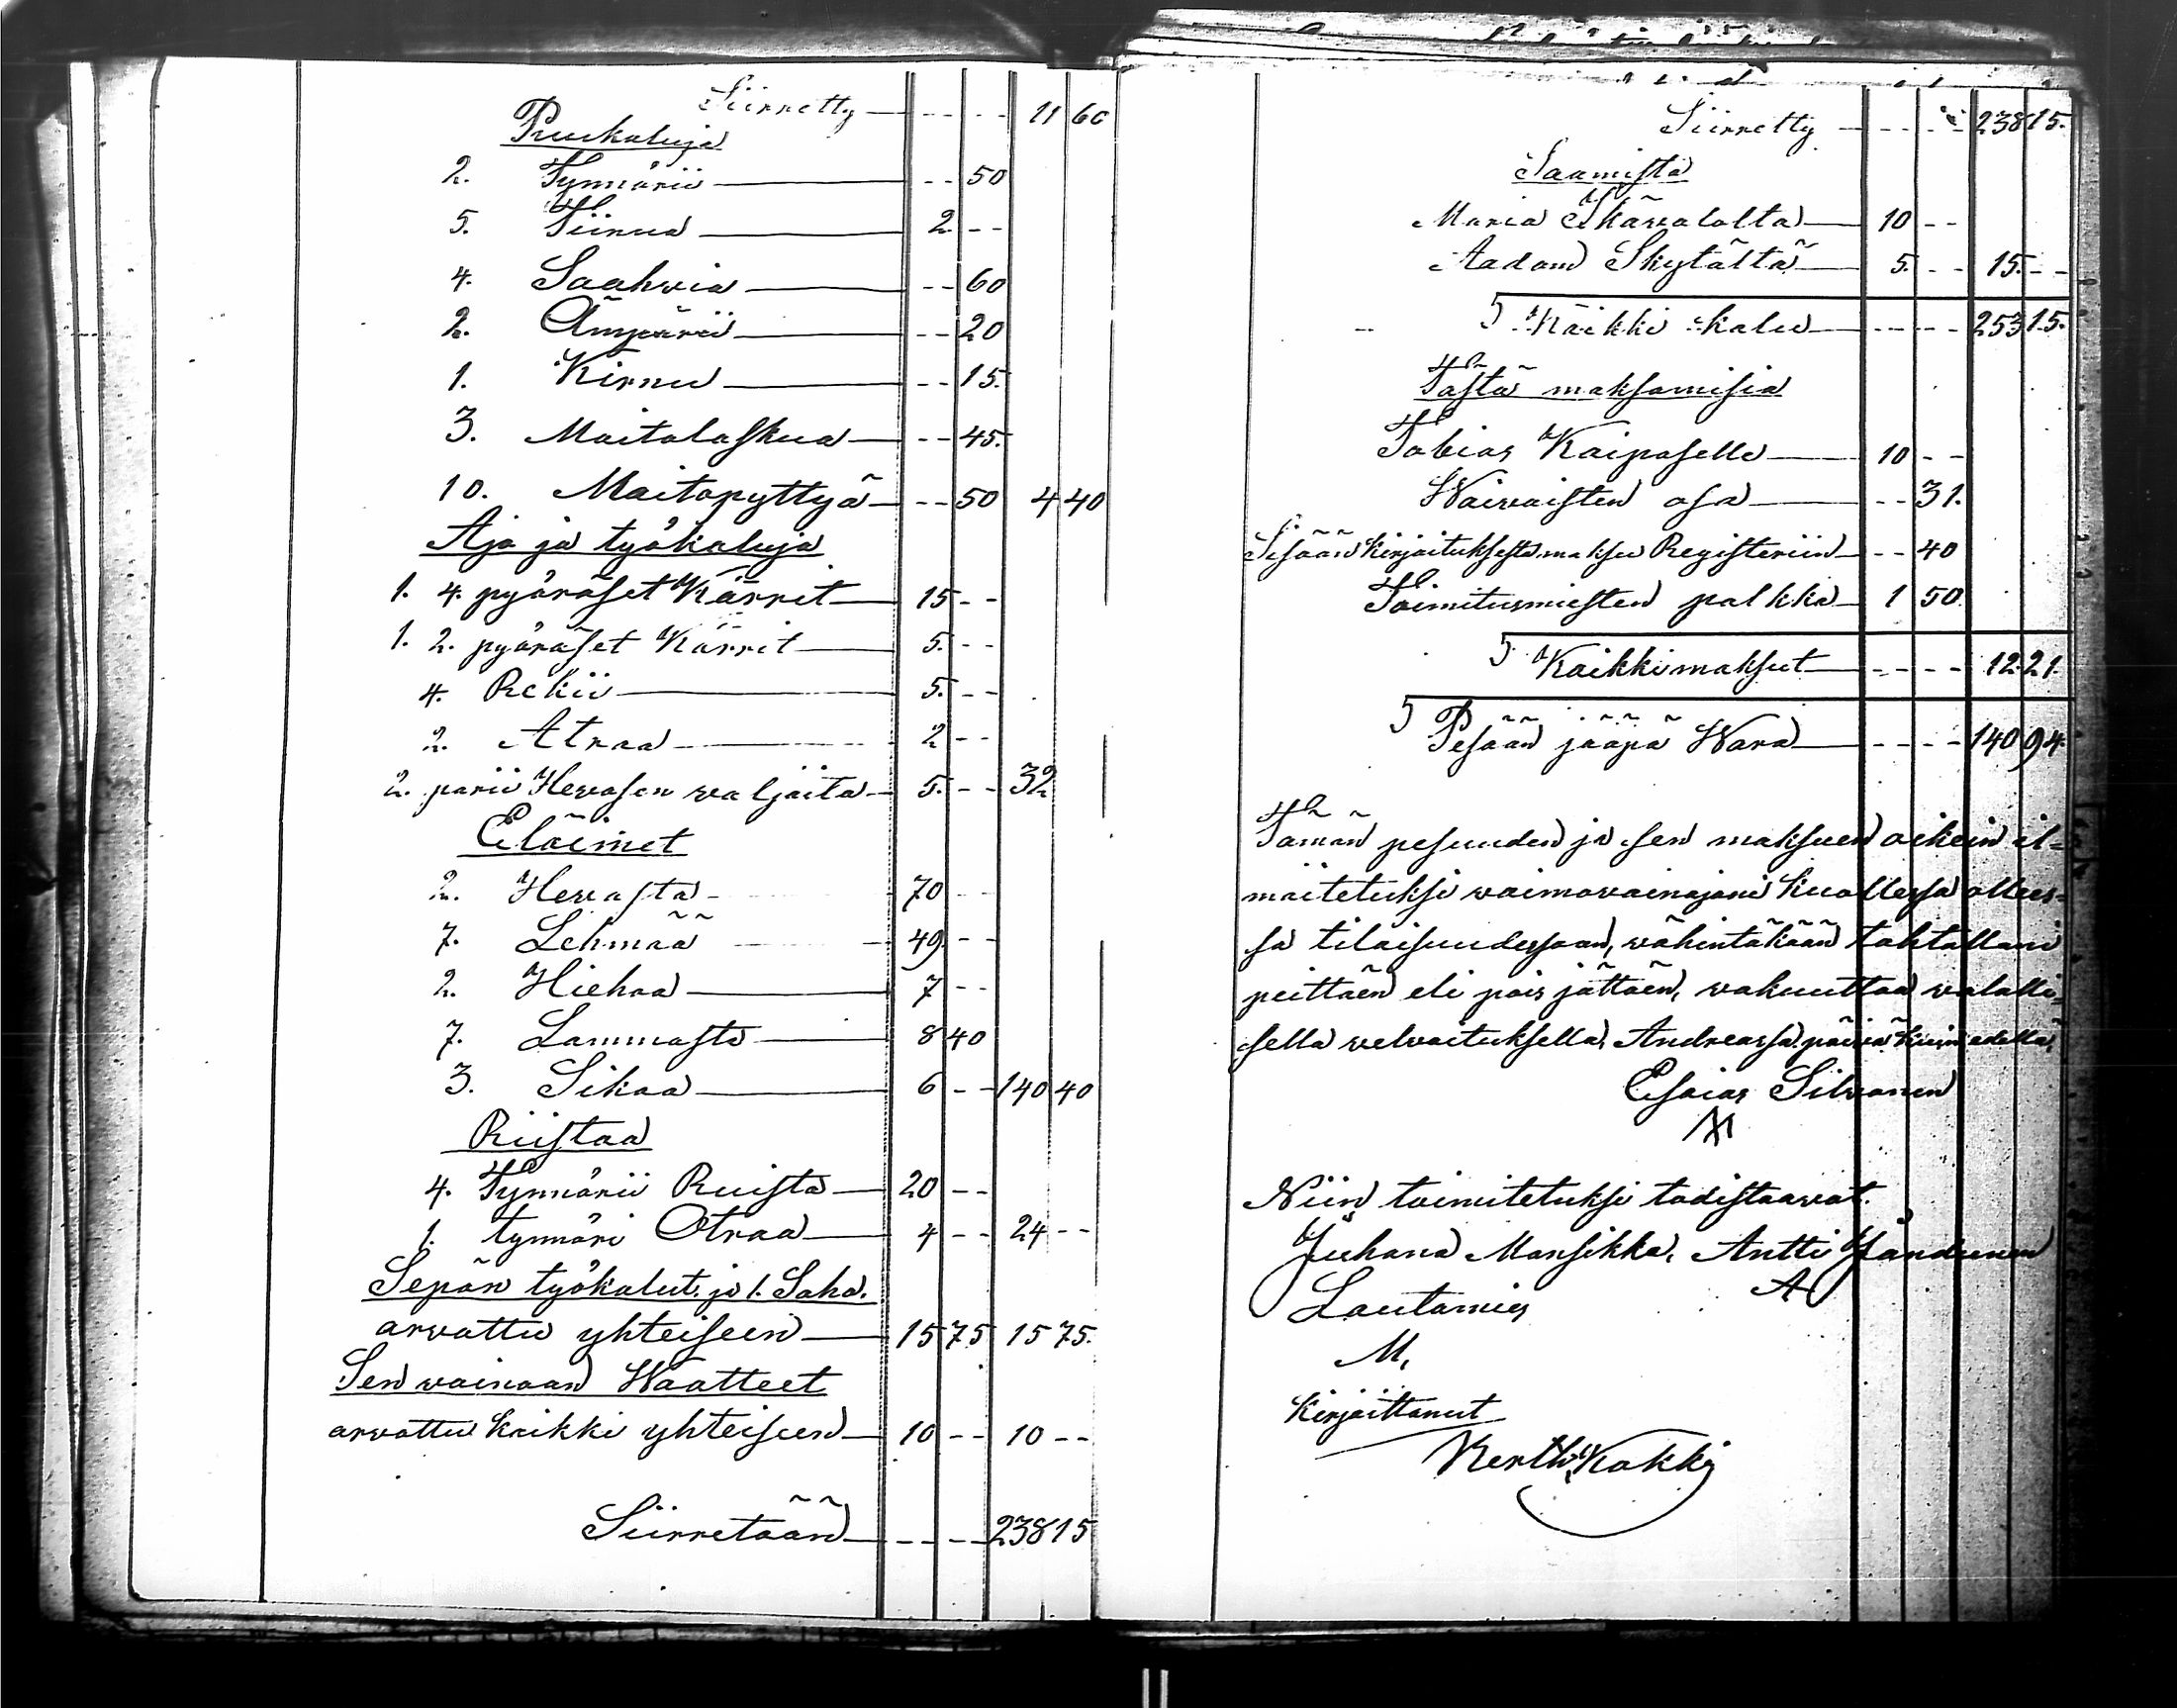 Siirretty - - - - 11 60
Puukaluja
2. Tynnärii - - 50
5. Tiinua 2 - -
4. Saahvia - - 60
2. Ämpärii - - 20
1. Kirnu - - 15.
3. Maitolaskua - - 45.
10. Maitopyttyä - - 50 4 40
Ajo ja työkaluja
1. 4. pyöräset Kärrit 15 - -
1. 2. pyöräset Kärrit 5. - -
4. Rekii 5. - -
2. Atraa 2 - -
2. parii Hewosen waljäita 5. - - 32
Eläimet
2. Hewosta 70 - -
7. Lehmää 49. - -
2. Hiehoa 7 - -
7. Lammasta 8 40
3. Sikaa 6 - - 140 40
Riistaa
4. Tynnärii Ruista 20 - -
1. tynnäri Otraa 4 - - 24 - -
Sepän työkalut. ja 1. Saha.
arvattu yhteiseen 15 75 15 75.
Sen wainaan Waatteet
arvattu kaikki yhteiseen 10 - - 10 - -
Siirretään - - - - 238 15
Siirretty - - - - 238 15.
Saamista
Maria Ikäwalolta 10 - -
Aadam Skytältä 5. - - 15. - -
Kaikki kalu - - - - 253 15.
Tästä maksamisia
Tobias Kaipaselle 10 - -
Waivaisten osa - - 31.
Sisään kirjoituksesta maksu Registeriin - - 40
Toimitusmiesten palkka 1 50
Kaikki maksut - - - - 12. 21.
Pesään jääpä Wara - - - - 140 94
Tämän pesuuden ja sen maksuen oikein il=
moitetuksi waimovainajani kuollessa ollees=
sa tilaisuudessaan, wähintäkään tahtallani
peittäen eli pois jättäen, wakuuttaa walalli=
sella welvoituksella, Andreassa. päivä kuin edellä,
Esaias Silvanen
Niin toimitetuksi todistaavat.
Juhana Mansikka, Antti Jändunen
Lautamies A
M,
Kirjoittanut
Kerth Kokki